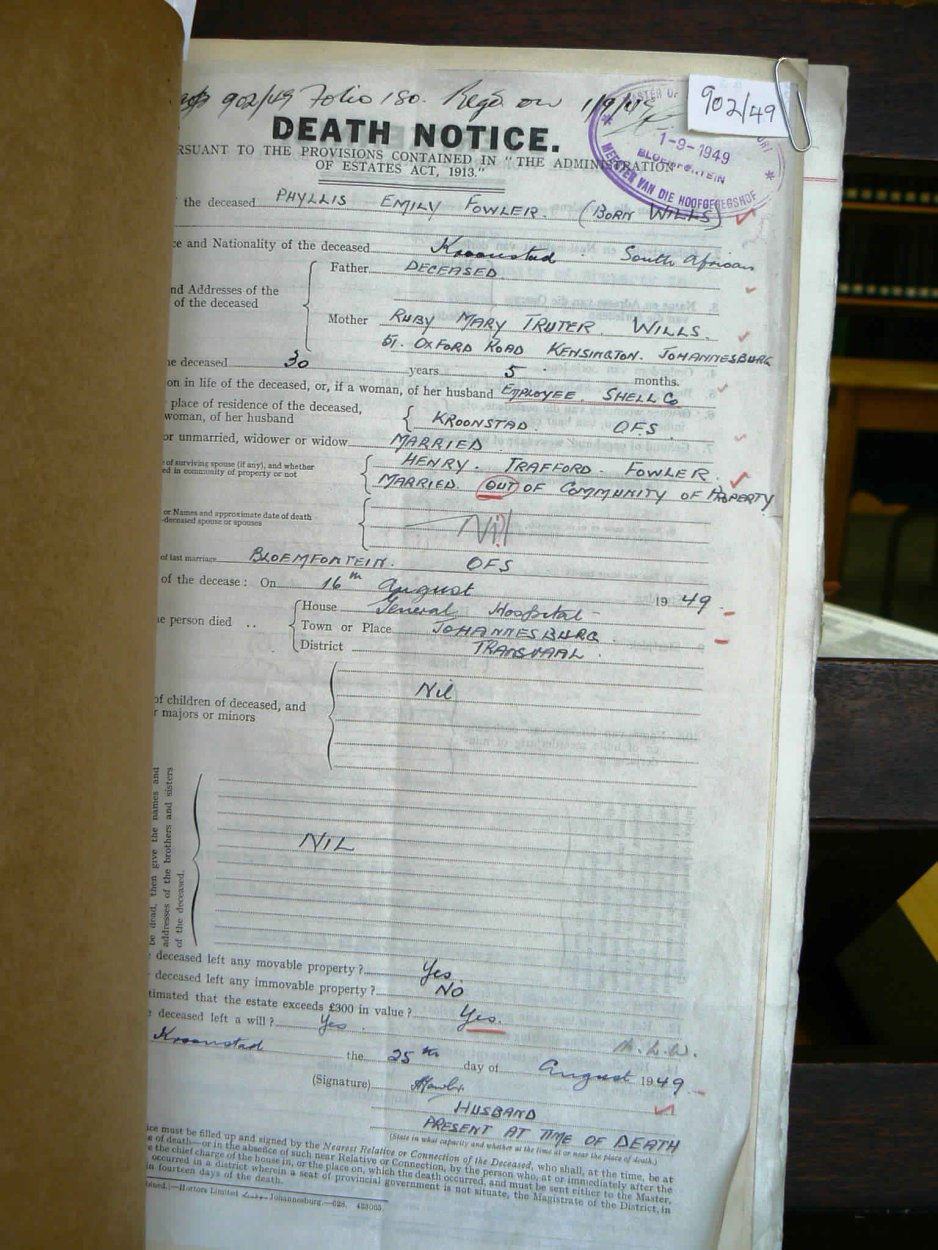 902/49 Folio 180. Regd. on 1/9/49
902/49
1-9-1949
BLOEMFONTEIN
MEESTER VAN DIE HOOGGEREGSHOF
DEATH NOTICE.
RSUANT TO THE PROVISIONS CONTAINED IN "THE ADMINISTRATION
OF ESTATES ACT, 1913."
the deceased PHYLLIS EMILY FOWLER. (BORN WILLS)
ce and Nationality of the deceased Kroonstad South African
Father DECEASED
nd Addresses of the
of the deceased
Mother RUBY MARY TRUTER WILLS.
51. OXFORD ROAD KENSINGTON. JOHANNESBURG
he deceased 30 years 5 months.
on in life of the deceased, or, if a woman, of her husband EMPLOYEE. SHELL Co
place of residence of the deceased,
woman, of her husband KROONSTAD. OFS.
or unmarried, widower or widow MARRIED
of surviving spouse (if any), and whether HENRY. TRAFFORD. FOWLER.
ed in community of property or not MARRIED. OUT OF COMMUNITY OF PROPERTY
or Names and approximate date of death
-deceased spouse or spouses Nil
of last marriage BLOEMFONTEIN. OFS
of the decease: On 16th August 1949
House General Hospital
he person died .. Town or Place JOHANNESBURG
District TRANSVAAL.
Nil
of children of deceased, and
r majors or minors
be dead, then give the names and
addresses of the brothers and sisters
of the deceased.
NIL
deceased left any movable property? Yes
deceased left any immovable property? NO
timated that the estate exceeds £300 in value? Yes.
deceased left a will? Yes.
M.L.W.
Kroonstad the 25th day of August 1949
(Signature)
HUSBAND
PRESENT AT TIME OF DEATH
(State in what capacity and whether at the time at or near the place of death.)
ice must be filled up and signed by the Nearest Relative or Connection of the Deceased, who shall, at the time, be at
e of death—or in the absence of such near Relative or Connection, by the person who, at or immediately after the
e the chief charge of the house in, or the place on, which the death occurred, and must be sent either to the Master,
occurred in a district wherein a seat of provincial government is not situate, the Magistrate of the District, in
n fourteen days of the death.
Hortors Limited Johannesburg.